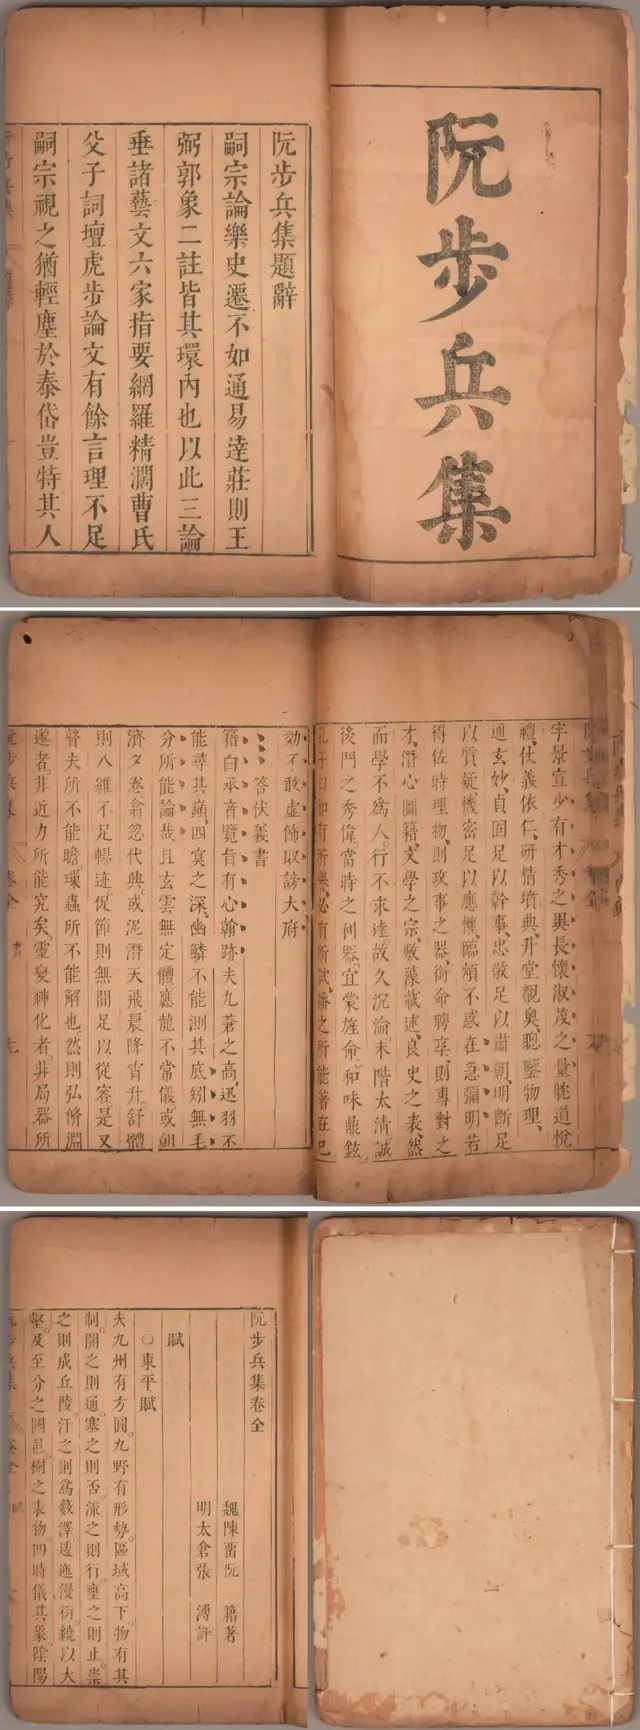 阮步兵集
阮步兵集題辭
嗣宗論樂史遷不如通易達莊則王
弼郭象二註皆其環內也以此三論
垂諸藝文六家指要網羅精濶曹氏
父子詞壇虎步論文有餘言理不足
嗣宗視之猶輕塵於泰岱豈特其人
字景宣少有才秀之異長懷淑茂之量躭道悅
禮仗義依仁研精墳典升堂覩奧聰鑒物理
通玄妙貞固足以幹事忠敬足以肅朝明斷足
以質疑機密足以應機臨煩不惑在急彌明若
得佐時理物則政事之器銜命聘享則專對之
才潛心圖籍文學之宗敷藻載述良史之表然
而學不爲人行不求達故久沉淪未階太清誠
後門之秀偉當時之利器宜蒙旌命和味鼎鉉
孔子曰如有所譽必有所試蕃之所能著在已
効不敢虛飾取謗大府
答伏義書
籍白承音覽旨有心翰跡夫九蒼之高迅羽不
能尋其巔四冥之深幽鱗不能測其底矧無毛
分所能論哉且玄雲無定體應龍不常儀或朝
濟夕卷翕忽代興或泥潛天飛晨降宵升舒體
則八維不足暢迹促節則無間足以從容是又
瞽夫所不能瞻瑣蟲所不能解也然則弘脩淵
邃者非近力所能究矣靈變神化者非局器所
阮步兵集卷全
魏陳畱阮 籍著
明太倉張 溥評
賦
○東平賦
夫九州有方圓九野有形勢區域高下物有其
制開之則通塞之則否流之則行壅之則止崇
之則成丘陵汙之則爲藪澤逶迤漫衍繞以大
壑及至分之國邑樹之表物四時儀其象陰陽